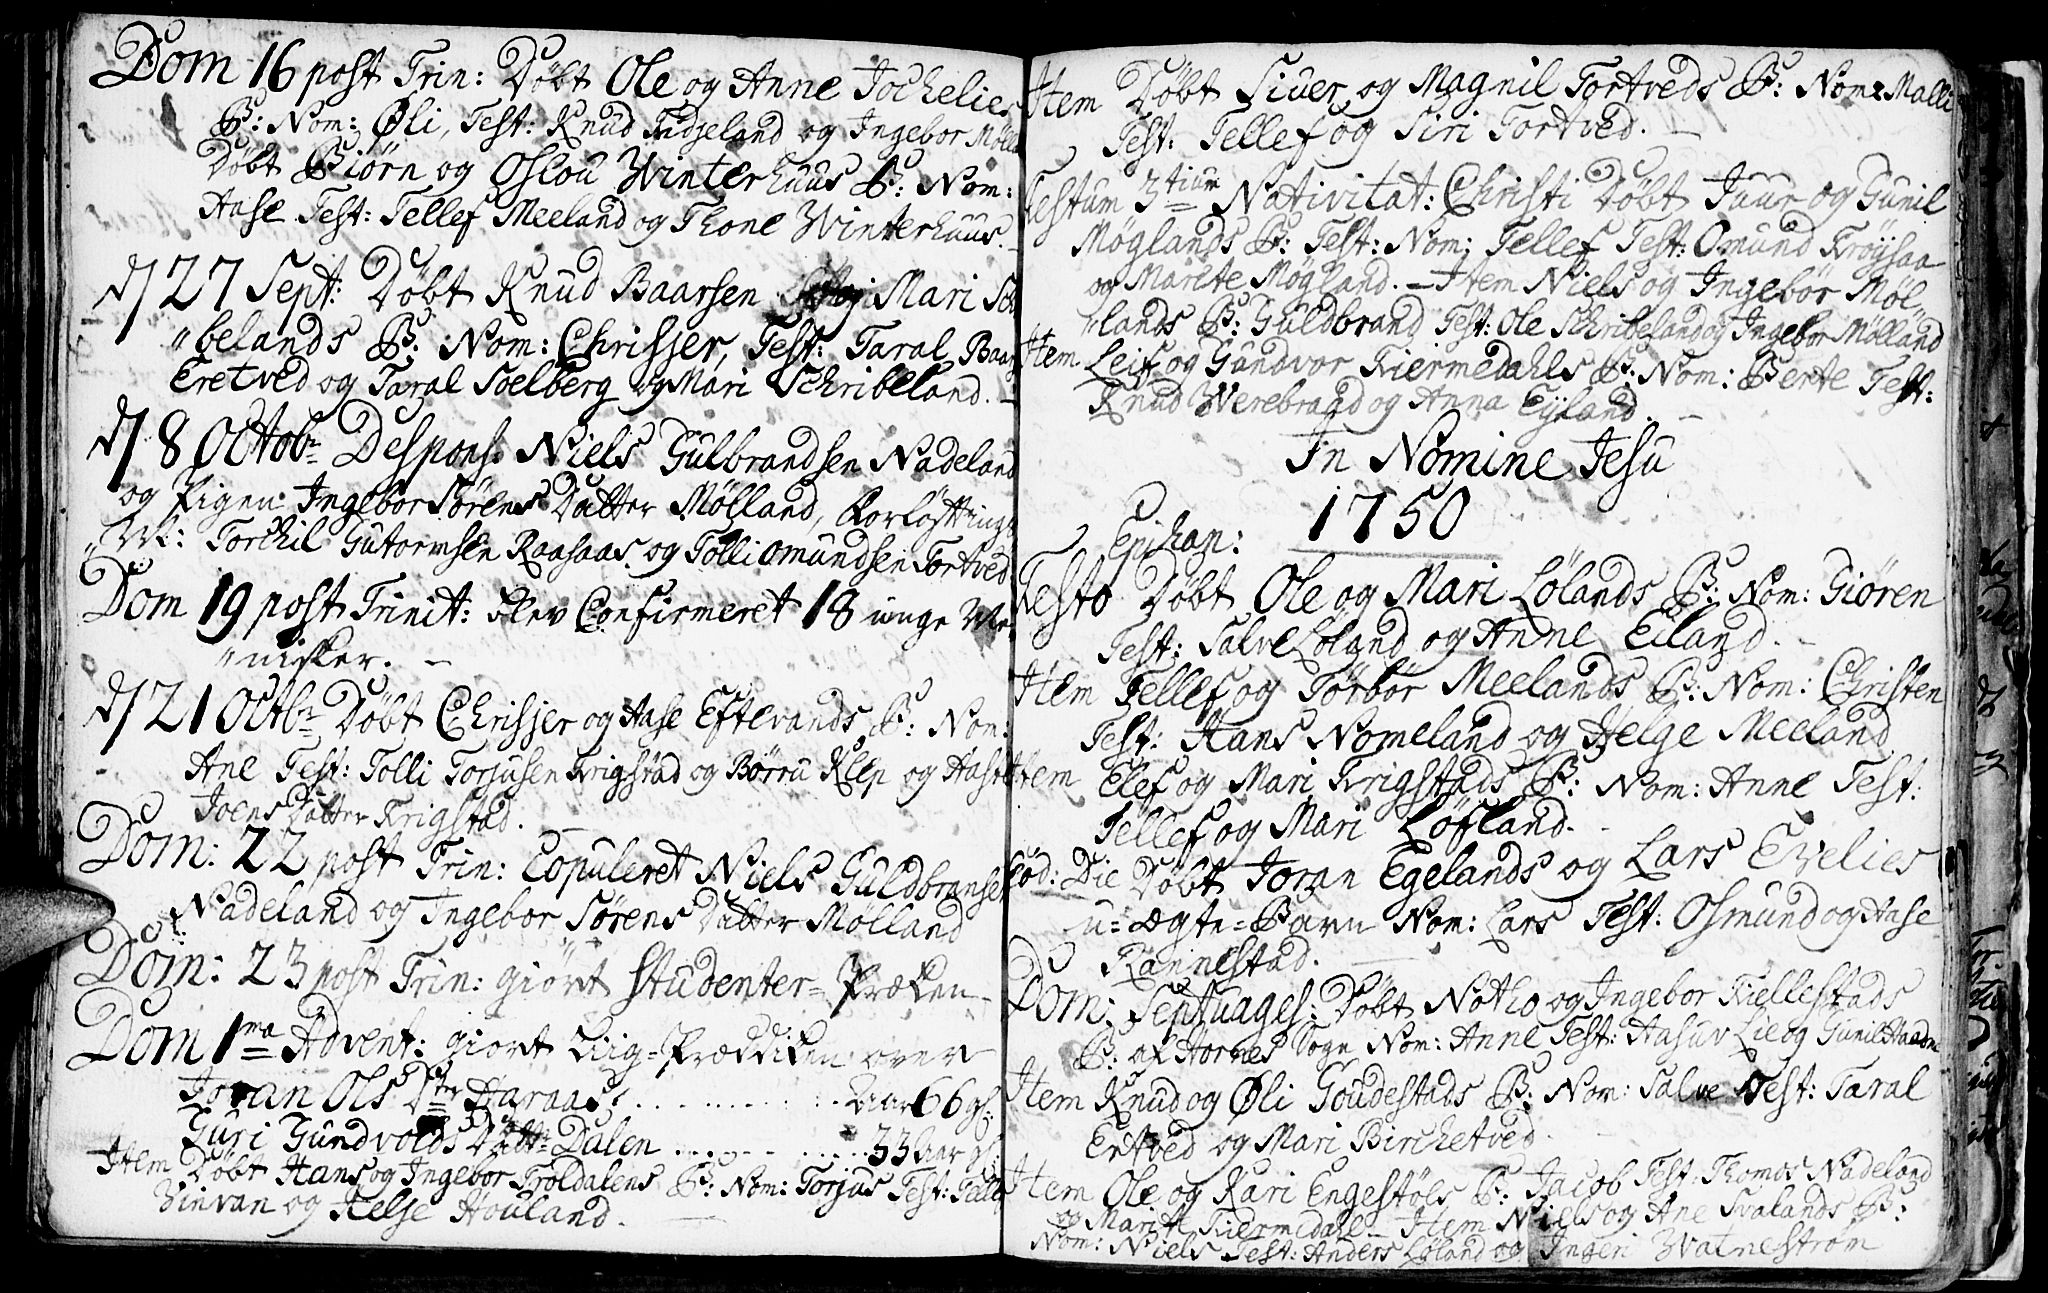 Dom 16 post Trin: Døbt Ole og Anne Jochelies
B: Nom: Øli, Test: Knud Fidjeland og Ingebor Mølla
Døbt Biørn og Oslou Winterhuus B: Nom:
Aase Test: Tellef Meeland og Thone Winterhuus.
27 Sept: Døbt Knud Baarsen og Mari Sch
"belands B: Nom: Chrisjer, Test: Taral Baar
Eretved og Taral Soelberg og Mari Schribeland.
8 Octobr Despons: Niels Gulbrandsen Nadeland
og Pigen Ingebor Sørens Datter Mølland, Forløftnings
M: Torchil Gutormsen Raasaas og Tolli Omundsen Tortved
Dom 19 post Trinit: blev Confirmeret 18 unge Me
"nisker.
21 Octbr Døbt Chrisjer og Aase Eftevands B: Nom:
Ane Test: Tolli Torjusen Frigstad og Børru Klep og Aase
Joens Datter Frigstad.
Dom: 22 post Trin: Copuleret Niels Guldbransen
Nadeland og Ingebor Sørens Datter Molland
Dom: 23 post Trin: giørt Studenter=Præken
Dom 1ma Advent: giort Liig=Præddiken over
Joran Ols Dtr Haraas . . . Aar 66 gl:
Guri Gundvolds Dattr Dalen . . . 33 Aar gl:
Item Døbt Hans og Ingebor Troldalens B: Nom: Torjus Test: Tellef
Vinvan og Helje Houland.
Item Døbt Siver og Magnil Tortveds B: Nom: Malli
Test: Tellef og Siri Tortved.
Festum 3tium Nativitat: Christi Døbt Juur og Gunil
Møglands B: Test: Nom: Tellef Test: Omund Frøysaa
og Marite Møgland. Item Niels og Ingebor Møl"
"lands B: Guldbrand Test: Ole Schribeland og Ingebor Mølland
Item Leif og Gundvor Kiermedahls B: Nom: Berte Test:
Knud Werebrand og Anna Eyland.
In Nomine Jesu
1750
Epihap:
Festo Døbt Ole og Mari Lølands B: Nom: Giøren
Test: Salve Løland og Anne Eiland.
Item Tellef og Torbor Meelands B: Nom: Christen
Test: Hans Nomeland og Helge Meeland
Item Elef og Mari Frigstads B: Nom: Anne Test:
Tellef og Mari Løfland.
Eod: Die Døbt Joran Egelands og Lars Evelies
u=Ægte=Barn Nom: Lars Test: Osmund og Aase
Rannestad.
Dom: Septuages: Døbt Notho og Ingebor Kiellestads
B: af Hornes Sogn Nom: Anne Test: Aasuv Lie og Gunil Haaom
Item Knud og Øli Goudestads B: Nom: Salve Test: Taral
Ertved og Mari Birchetved
Item Ole og Kari Engestøls B: Jacob Test: Thomas Nadeland
og Marite Kiermedale Item Niels og Ane Svalands B:
Nom: Niels Test: Anders Løland og Ingeri Watnestrøm